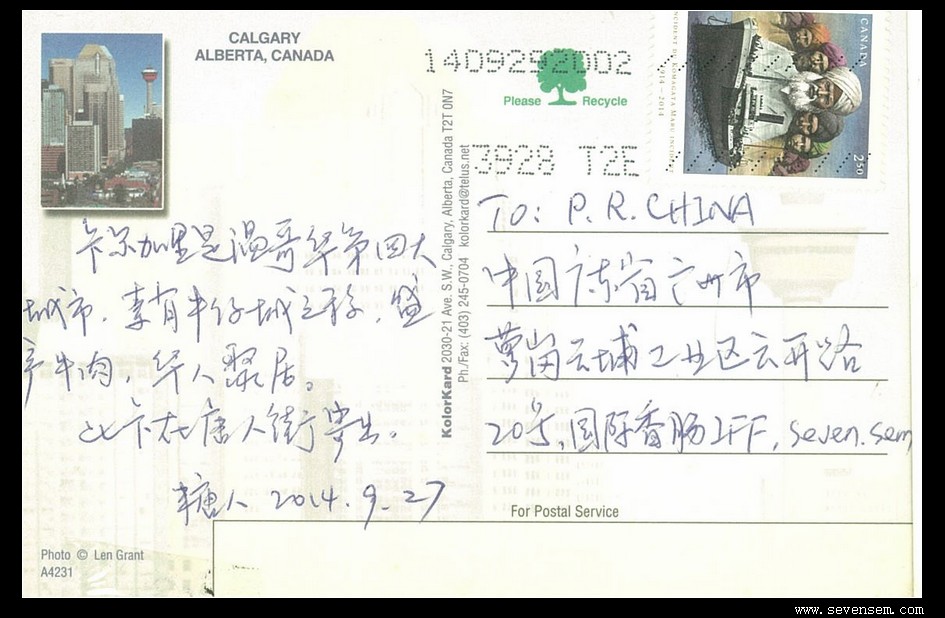 CALGARY
ALBERTA, CANADA
14092
2002
Please Recycle
3928 T2E
CANADA
INCIDENT DU KOMAGATA MARU INCIDENT
1914-2014
250
卡尔加里是温哥华第四大
城市，素有牛仔城之称，盛
产牛肉，华人聚居。
此卡在唐人街寄出。
糖人 2014.9.27
KolorKard 2030-21 Ave. S.W., Calgary, Alberta, Canada T2T 0N7
Ph./Fax: (403) 245-0704 kolorkard@telus.net
TO: P.R.CHINA
中国广东省广州市
萝岗云埔工业区云开路
20号，国际香肠IFF, seven.sem
For Postal Service
Photo © Len Grant
A4231
www.sevensem.com